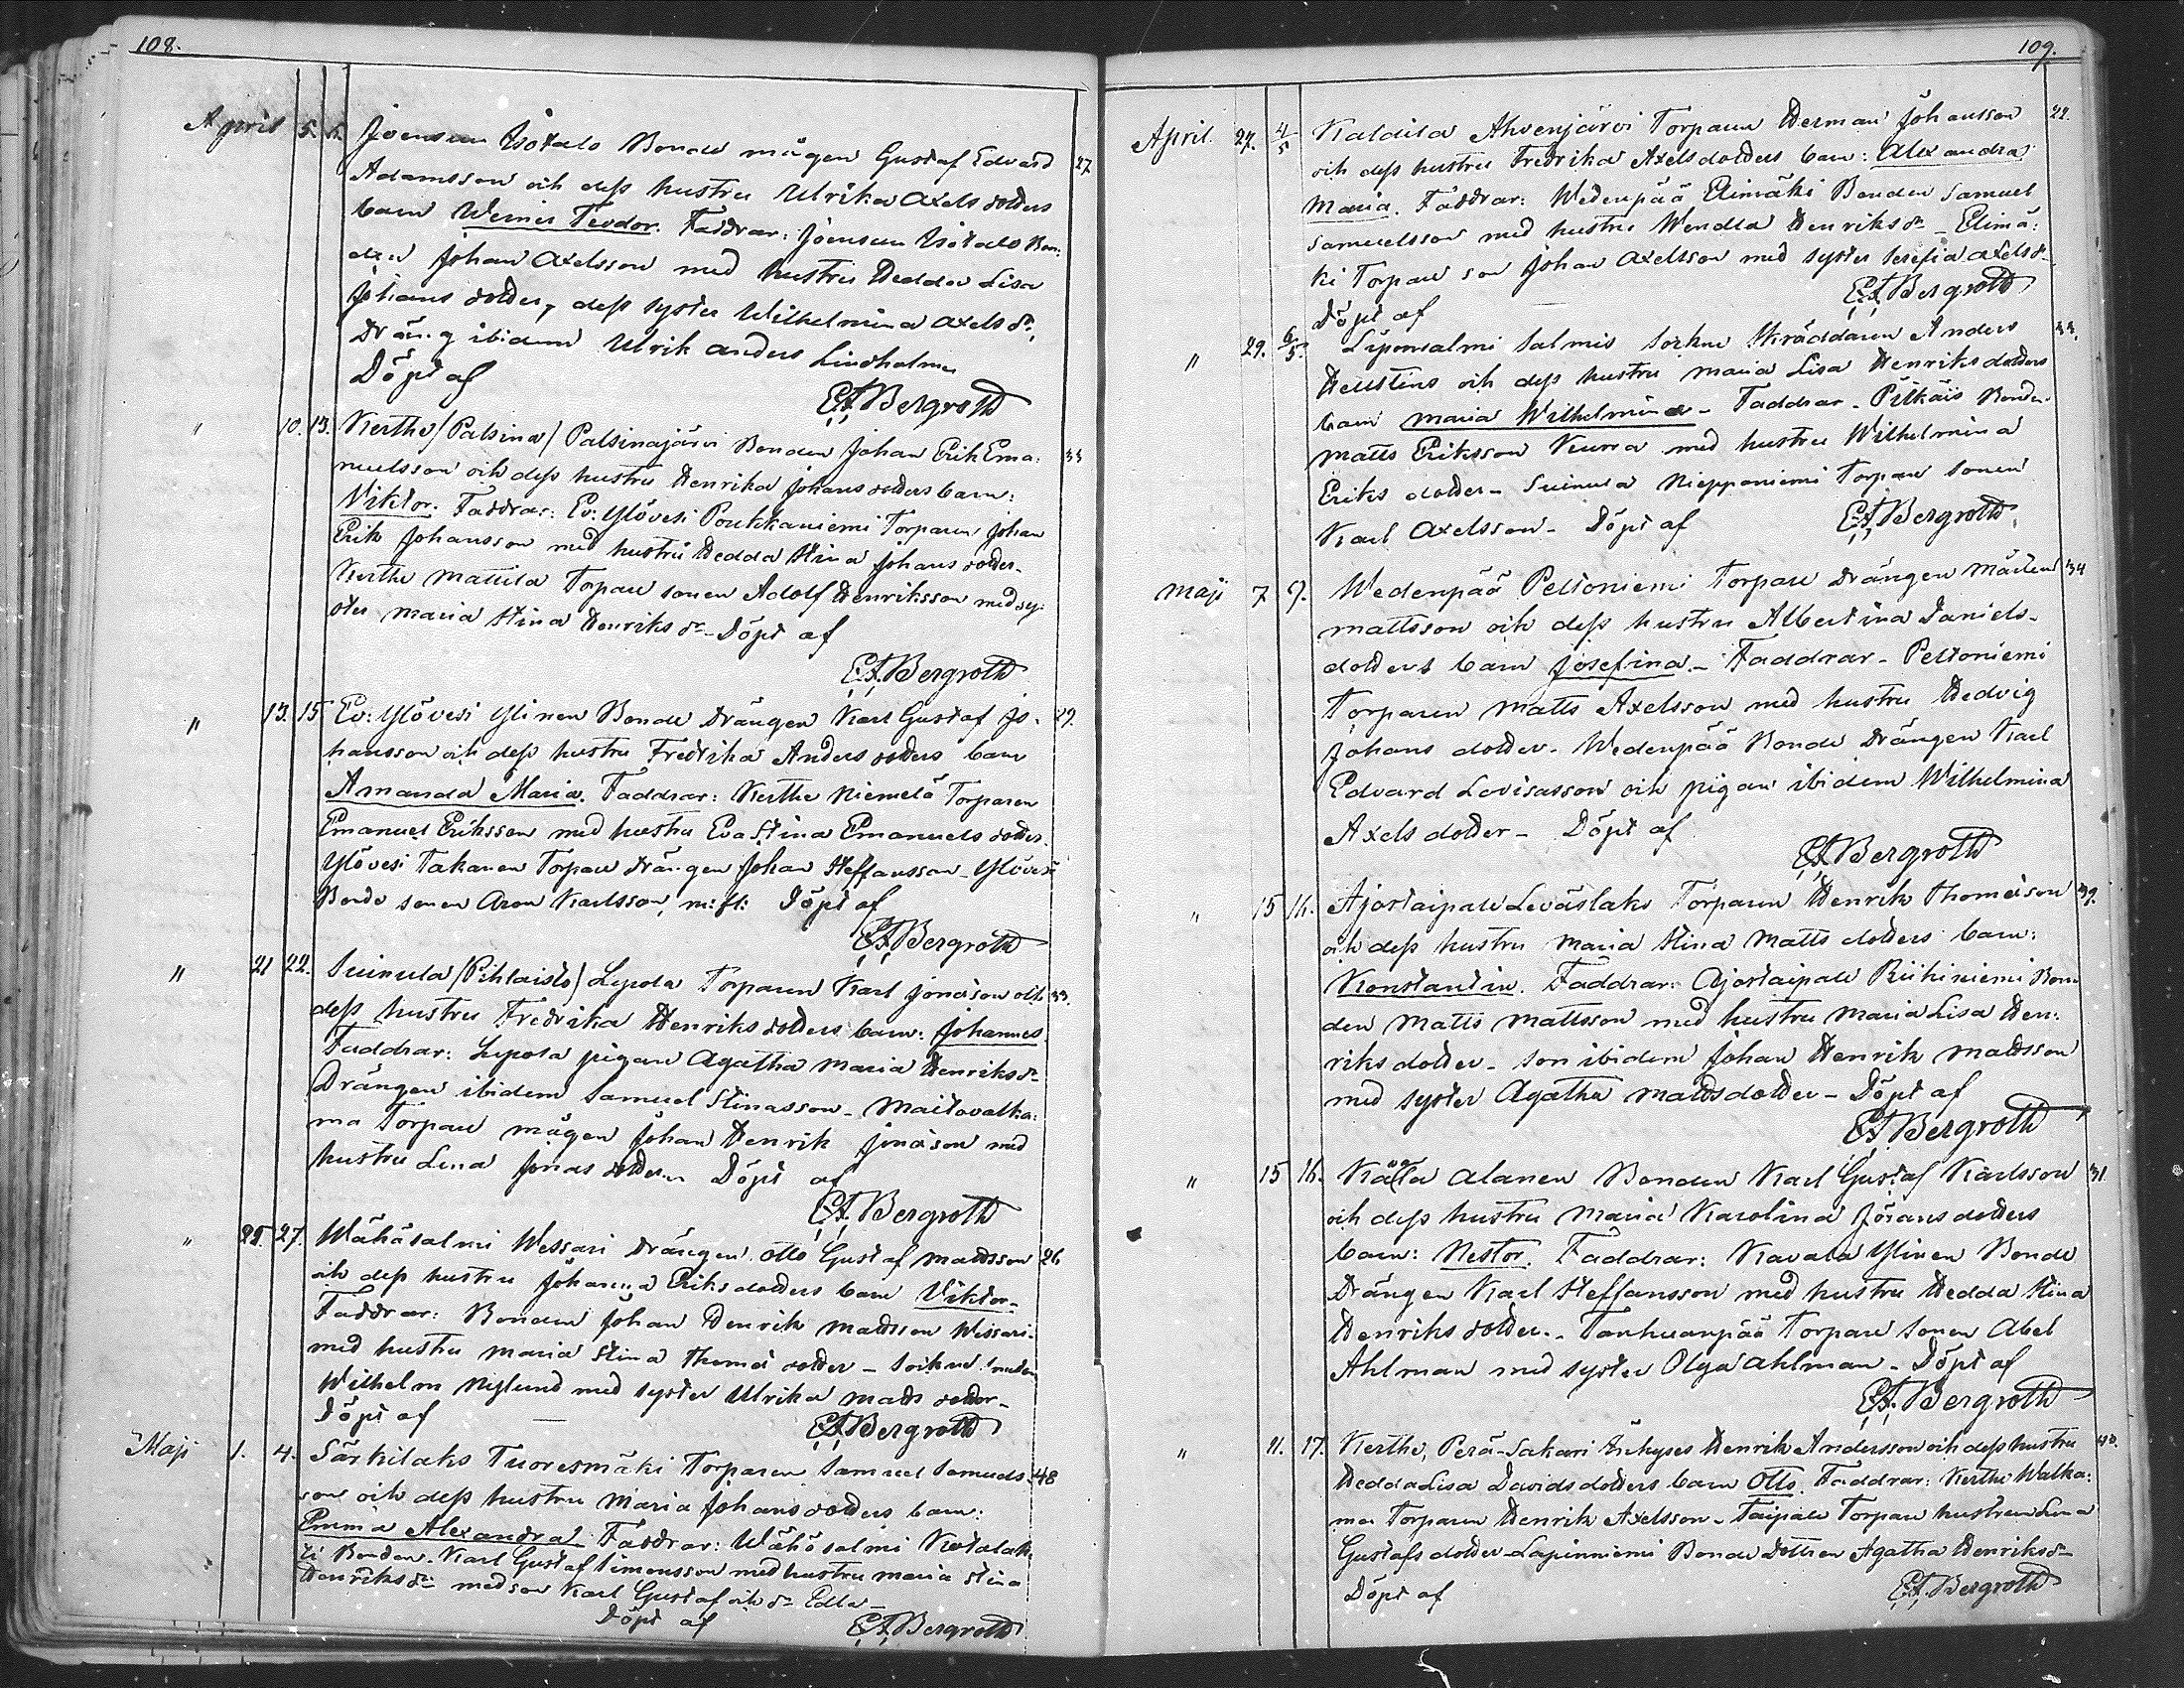 108.
April 5. 6. Joensuu Isotalo Bonde mågen Gustaf Edvard 27
Adamsson och dess hustru Ulrika Axels dotters
barn Werner Teodor. Faddrar: Joensuu Isotalo Bon-
den Johan Axelsson med hustru Hedda Lisa
Johans dotter, dess syster Wilhelmina Axels dr,
Dräng ibidem Ulrik Anders Lindholm
Döpt af
E A Bergroth
" 10. 13. Kerthe (Palsina) Palsinajärvi Bonden Johan Erik Ema- 33
nuelsson och dess hustru Henrika Johans dotters barn:
Viktor. Faddrar: Ev: Ylövesi Poukkaniemi Torparen Johan
Erik Johansson med hustru Hedda Stina Johans dotter.
Kerthe Mattila Torpare sonen Adolf Henriksson med sy-
ster Maria Stina Henriks dr - Döpt af
E A Bergroth
" 13. 15 Ev: Ylövesi Ylinen Bonde Drängen Karl Gustaf Jo- 29.
hansson och dess hustru Fredrika Anders dotters barn
Amanda Maria. Faddrar: Kerthe Niemelä Torparen
Emanuel Eriksson med hustru Eva Stina Emanuels dotter.
Ylövesi Takanen Torpare drängen Johan Steffansson - Ylövesi
Bonde sonen Aron Karlsson, m: fl: Döpt af
E A Bergroth
" 21 22. Suinula (Pihlaisto) Lepola Torparen Karl Jonasson och 33.
dess hustru Fredrika Henriks dotters barn: Johannes
Faddrar: Lepola pigan Agatha Maria Henriks dr
Drängen ibidem Samuel Stinasson - Maitovalka-
ma Torpare mågen Johan Henrik Jonasson med
hustru Lena Jonas dotter Döpt af
E A Bergroth
" 25. 27. Wähäsalmi Wessari Drängen Otto Gustaf Mattsson 26
och dess hustru Johanna Eriks dotters barn Viktor-
Faddrar: Bonden Johan Henrik Mattsson Wessari-
med hustru Maria Stina Thomæ dotter -
Wilhelm Nylund med syster Ulrika Matts dotter-
Döpt af
E A Bergroth
Maji 1. 4. Särkilaks Tuoresmäki Torparen Samuel Samuels- 48
son och dess hustru Maria Johans dotters barn:
Emma Alexandra. Faddrar: Wähäsalmi Kotalah-
ti Bonden Karl Gustaf Simonsson med hustru Maria Stina
Henriks dr med son Karl Gustaf och dr Edla -
Döpt af E A Bergroth
109.
April. 27. 4/5 Kaldila Ahvenjärvi Torparen Herman Johansson 22.
och dess hustru Fredrika Axels dotters barn: Alexandra
Maria. Faddrar: Wedenpää Elimäki Bonden Samuel
Samuelsson med hustru Wendla Henriks dr - Elimä-
ki Torpare son Johan Axelsson med syster Serafia Axels dr
Döpt af E A Bergroth
" 29. 6/5. Liponsalmi Salmis Sockne Skräddaren Anders 33.
Hellstens och dess hustru Maria Lisa Henriks dotters
barn Maria Wilhelmina - Faddrar - Pitkäis Bonden
Matts Eriksson Kurra med hustru Wilhelmina
Eriks dotter - Suinula Niepponiemi Torpare sonen
Karl Axelsson - Döpt af E A Bergroth
Maji 7. 9. Wedenpää Peltoniemi Torpare Drängen Mårten 34
Mattsson och dess hustru Albertina Daniels-
dotters barn Josefina - Faddrar - Peltoniemi
Torparen Matts Axelsson med hustru Hedvig
Johans dotter - Wedenpää Bonde Drängen Karl
Edvard Lovisasson och pigan ibidem Wilhelmina
Axels dotter - Döpt af
E A Bergroth
" 15 16. Ajostaipale Leväslaks Torparen Henrik Thomæson 39.
och dess hustru Maria Stina Matts dotters barn:
Konstantin. Faddrar: Ajostaipale Riihiniemi Bon-
den Matts Mattsson med hustru Maria Lisa Hen-
riks dotter - son ibidem Johan Henrik Mattsson
med syster Agatha Matts dotter - Döpt af
E A Bergroth
" 15 16. Kavala Alanen Bonden Karl Gustaf Karlsson 31
och dess hustru Maria Karolina Görans dotters
barn: Nestor. Faddrar: Kavala Ylinen Bonde
Drängen Karl Steffansson med hustru Hedda Stina
Henriks dotter - Tanhuanpää Torpare Sonen Abel
Ahlman med syster Olga Ahlman - Döpt af
E A Bergroth
" 11. 17. Kerthe, Perä-Sakari Inhyses Henrik Andersson och dess hustru
Hedda Lisa Davids dotters barn Otto. Faddrar: Kerthe Walka-
ma Torparen Henrik Axelsson - Taipale Torpare hustrun Lena
Gustafs dotter - Lapinniemi Bonde Dottren Agatha Henriks dr
Döpt af E A Bergroth